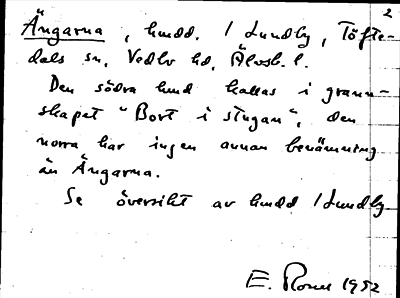 2
Ängarna, hmdd. / Lundby, Töfte-
dals sn, Vedbo hd, Älvsb. l.
Den södra hmd kallas i grann-
skapet "Bort i stugan", den
norra har ingen annan benämning
än Ängarna.
Se översikt av hmdd / Lundby
E. 1952